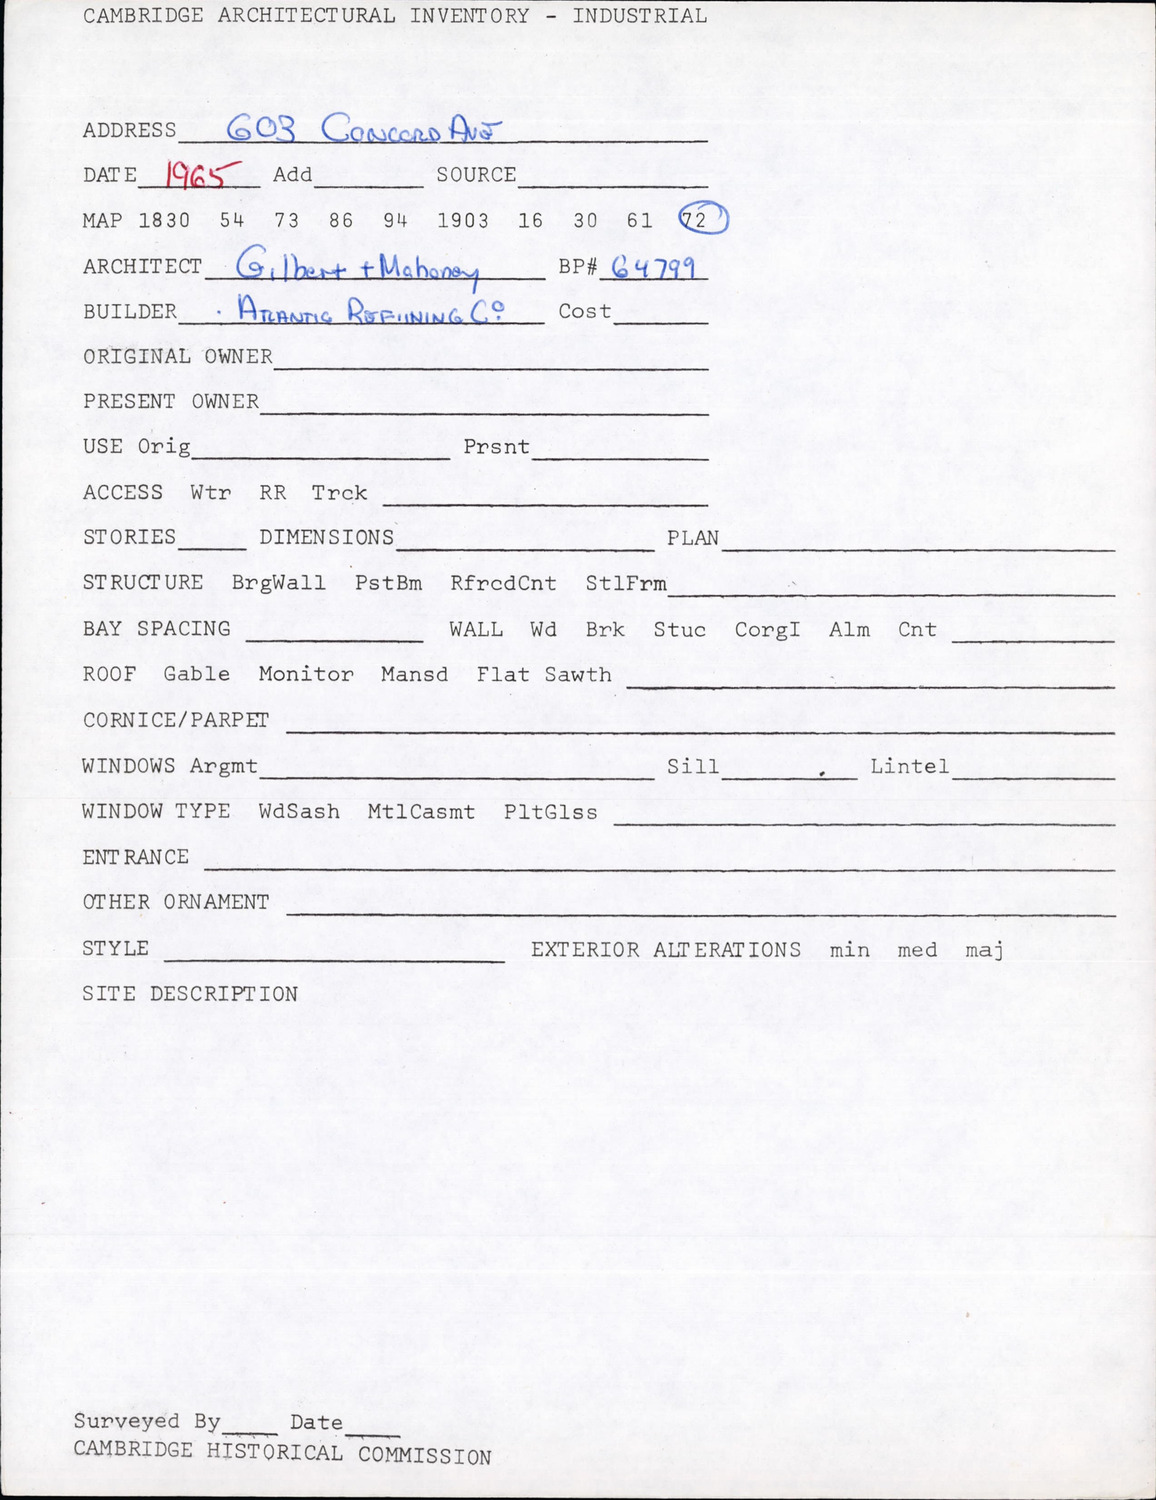 CAMBRIDGE ARCHITECTURAL INVENTORY - INDUSTRIAL
ADDRESS 603 Concord Ave
DATE 1965 Add SOURCE
MAP 1830 54 73 86 94 1903 16 30 61 72
ARCHITECT Gilbert + Mahoney BP# 64799
BUILDER Atlantic Refining Co Cost
ORIGINAL OWNER
PRESENT OWNER
USE Orig Prsnt
ACCESS Wtr RR Trck
STORIES DIMENSIONS PLAN
STRUCTURE BrgWall PstBm RfrcdCnt StlFrm
BAY SPACING WALL Wd Brk Stuc CorgI Alm Cnt
ROOF Gable Monitor Mansd Flat Sawth
CORNICE/PARPET
WINDOWS Argmt Sill Lintel
WINDOW TYPE WdSash MtlCasmt PltGlss
ENTRANCE
OTHER ORNAMENT
STYLE EXTERIOR ALTERATIONS min med maj
SITE DESCRIPTION
Surveyed By Date
CAMBRIDGE HISTORICAL COMMISSION